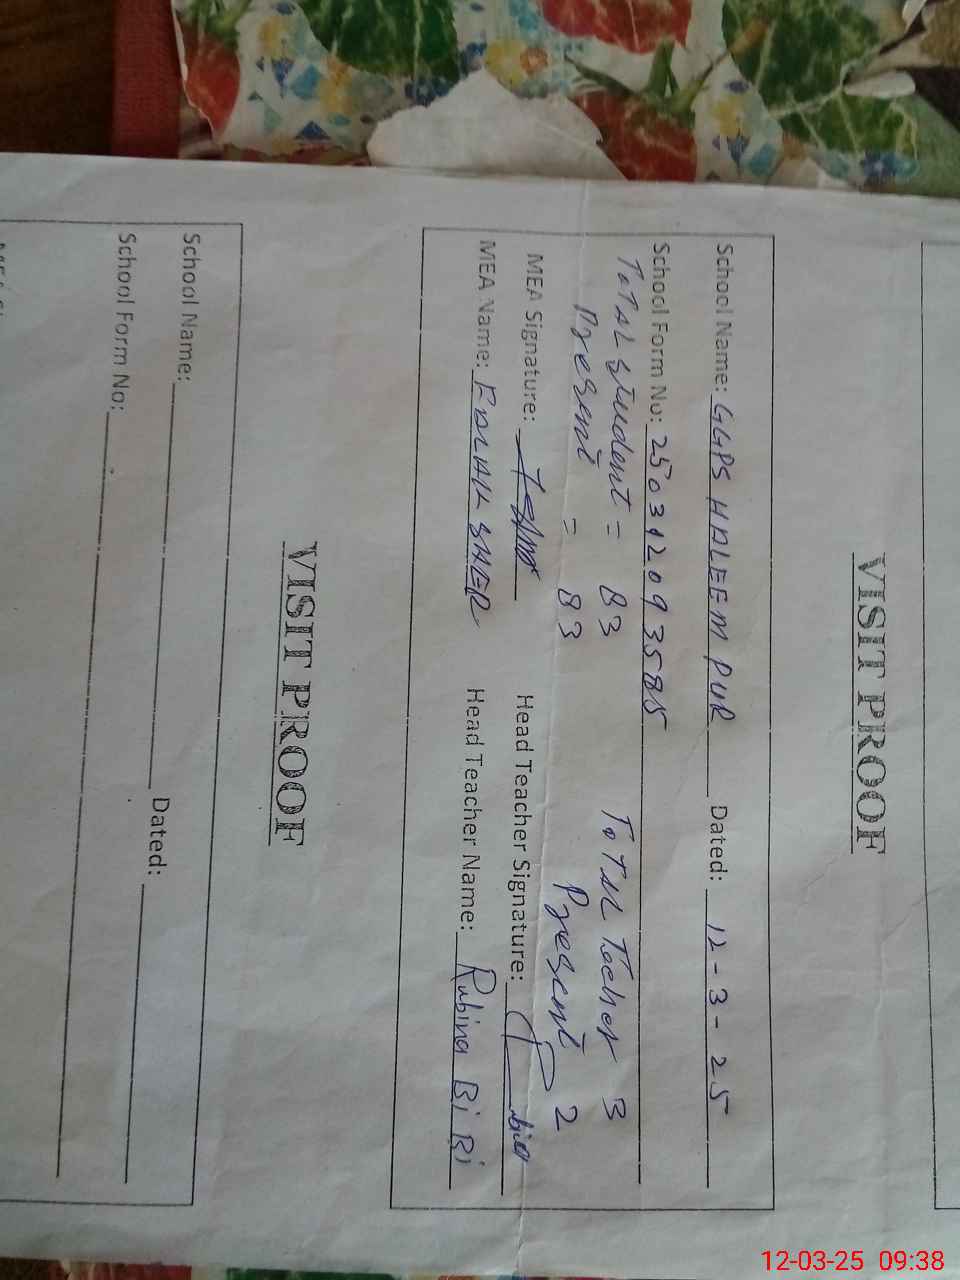 VISIT PROOF
School Name: GGPS HALEEM PUR Dated: 12-3-25
School Form No: 25031209 3585
ToTAL student = 83 ToTAL Techer 3
Present = 83 Present 2
MEA Signature: Head Teacher Signature:
MEA Name: FALAK SHER Head Teacher Name: Rubina Bi Bi
VISIT PROOF
School Name: Dated:
School Form No:
12-03-25 09:38